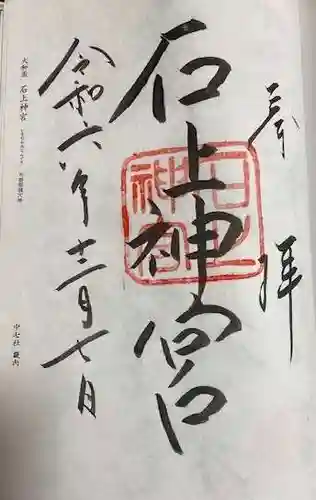 奉拝
石上神宮
石上
神宮
令和六年十二月七日
大和国 石上神宮
中七社 畿内